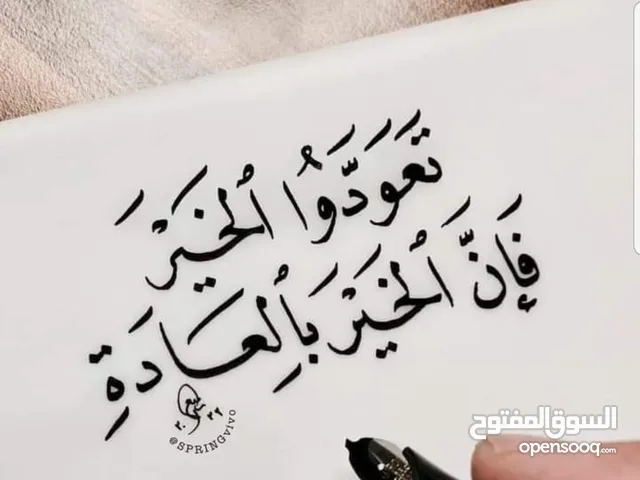 تَعَوَّدُوا ٱلخَيْرَ
فَإِنَّ ٱلخَيْرَ بِٱلعَادَةِ
٢٠٢٢
@SPRINGvivo
السوق المفتوح
opensooq.com